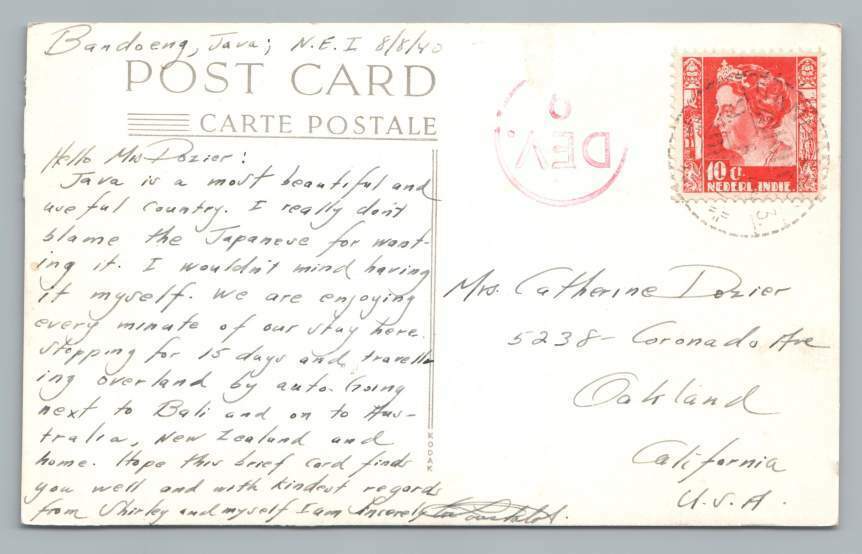 Bandoeng, Java; N.E.I 8/8/40
POST CARD
CARTE POSTALE
Hello Mrs Dozier:
Java is a most beautiful and
useful country. I really don't
blame the Japanese for want-
ing it. I wouldn't mind having
it myself. We are enjoying
every minute of our stay here.
Stopping for 15 days and travell-
ing overland by auto. Going
next to Bali and on to Aus-
tralia, New Zealand and
home. Hope this brief card finds
you well and with kindest regards
from Shirley and myself I am sincerely
KODAK
DEV.
6
10 CT.
NEDERL. INDIE
Mrs. Catherine Dozier
5238- Coronado Ave
Oakland
California
U.S.A.